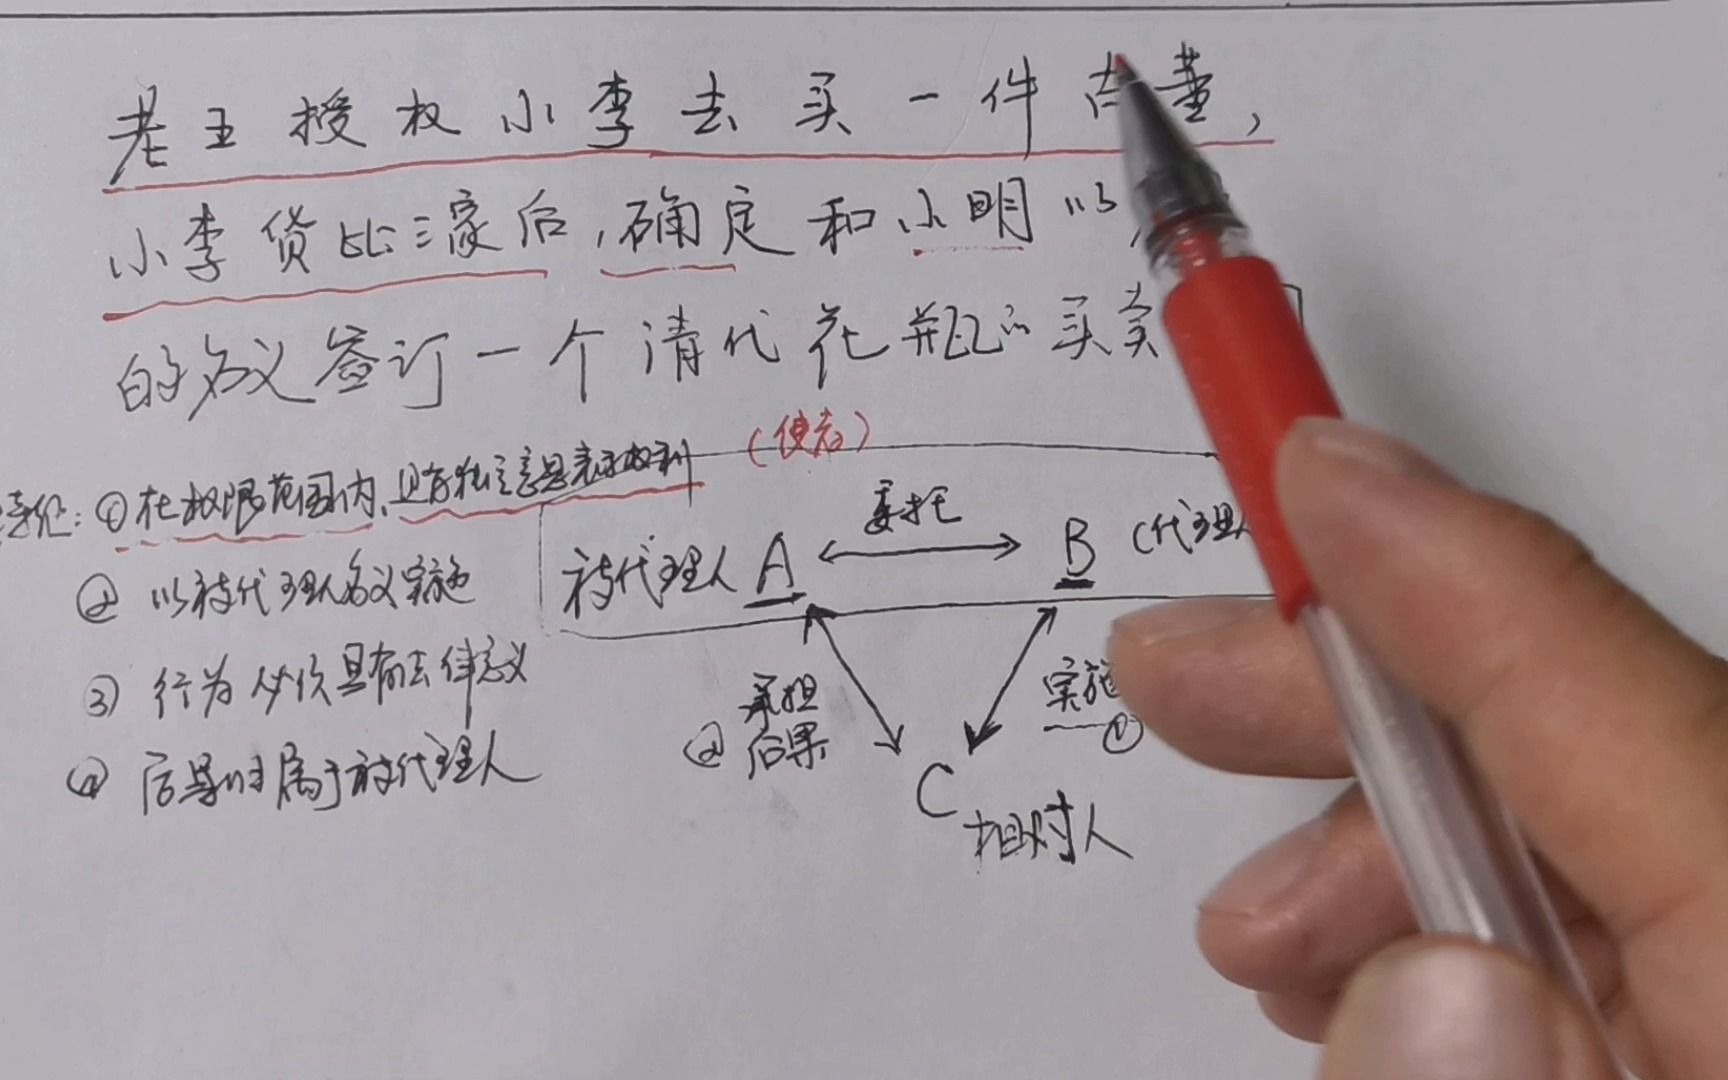 老王授权小李去买一件古董，
小李货比三家后，确定和小明以
的名义签订一个清代花瓶的买卖
（使者）
特征：①在权限范围内、具有独立意思表示权利
②以被代理人名义实施
③行为必须具有法律意义
④后果归属于被代理人
委托
被代理人 A B （代理人
②承担
后果
实施
①
C
相对人